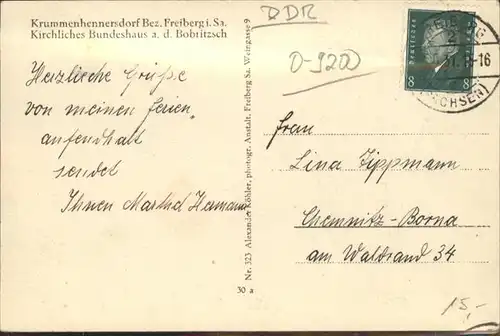 Krummenhennersdorf Bez. Freiberg i. Sa.
Kirchliches Bundeshaus a. d. Bobritzsch
Herzliche Grüße
von meinen Ferien
aufenthalt
sendet
Ihnen Martha Hermann
Nr. 323 Alexander Köhler, photogr. Anstalt, Freiberg Sa. Weingasse 9
30 a
DDR
D-9200
Deutsches
8 8
(SACHSEN)
Frau
Lina Zippmann
Chemnitz-Borna
am Waldrand 34
15,-